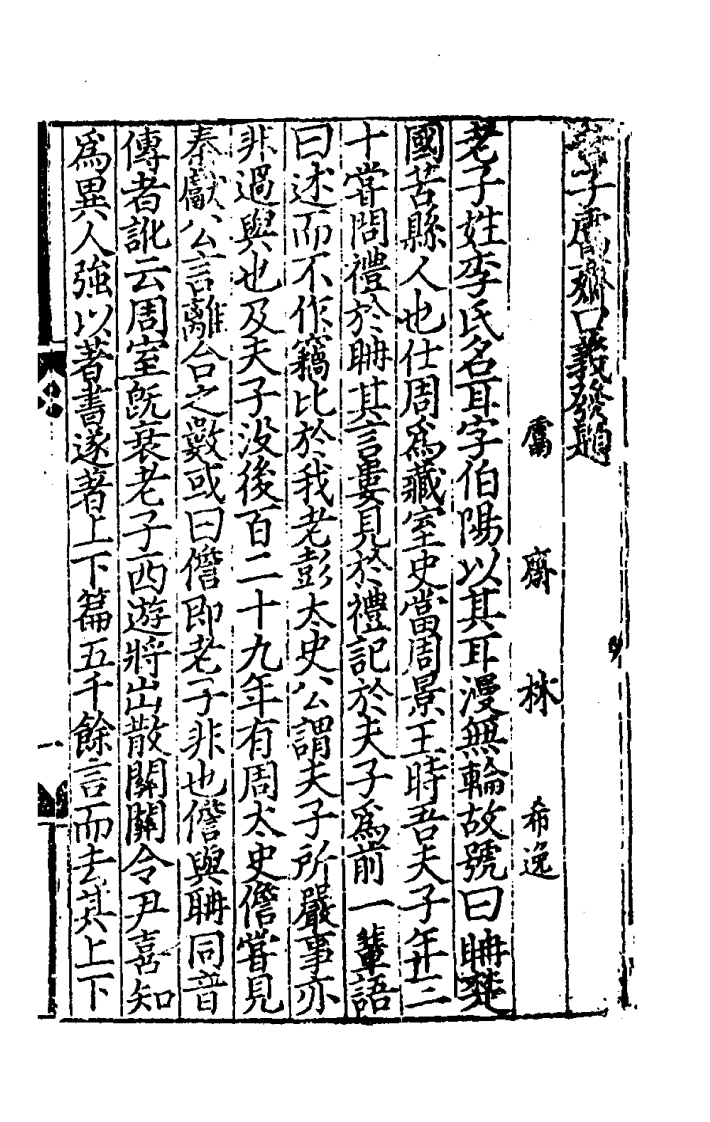 老子鬳齋口義發題
鬳齋林希逸
老子姓李氏名耳字伯陽以其耳漫無輪故號曰耼楚
國苦縣人也仕周爲藏室史當周景王時吾夫子年三
十嘗問禮於耼其言婁見於禮記於夫子爲前一輩語
曰述而不作竊比於我老彭太史公謂夫子所嚴事亦
非過與也及夫子没後百二十九年有周太史儋嘗見
秦獻公言離合之數或曰儋即老子非也儋與耼同音
傳者訛云周室既衰老子西遊將出散關關令尹喜知
爲異人強以著書遂著上下篇五千餘言而去其上下
一